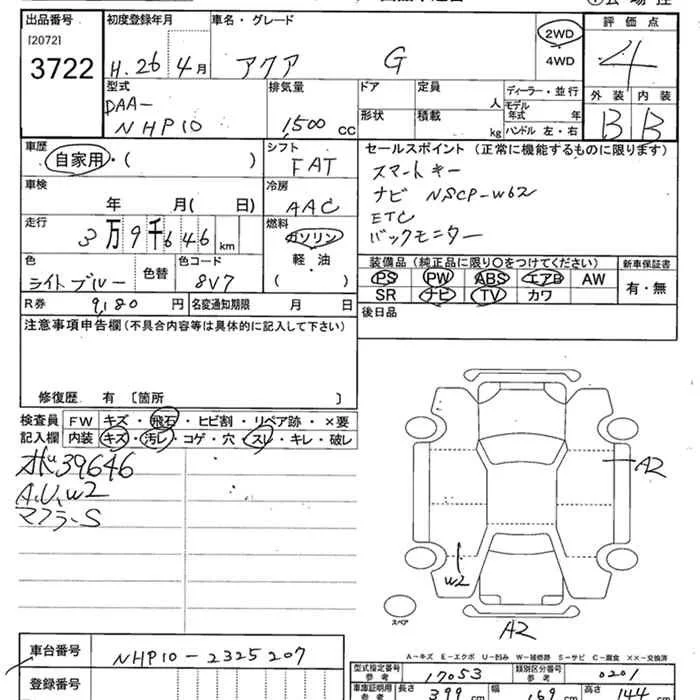 出品番号 初度登録年月 車名・グレード 評価点
[2072]
3722 H.26 4月 アクア G 2WD 4
4WD
型式 排気量 ドア 定員 人 ディーラー・並行 外装 内装
DAA-
NHP10 1,500 cc 形状 積載 kg モデル年式 年 B B
ハンドル 左・右
車歴 シフト セールスポイント（正常に機能するものに限ります）
自家用・( ) FAT スマートキー
車検 冷房 ナビ NSCP-W62
年 月( 日) AAC ETC
走行 燃料 バックモニター
3万9千646km ガソリン
軽・油
( )
色 色替 色コード 装備品（純正品に限り○をつけてください） 新車保証書
ライトブルー 8V7 PS PW ABS エアB AW 有・無
R券 9,180円 名変通知期限 月 日 SR ナビ TV カワ
注意事項申告欄（不具合内容等は具体的に記入して下さい） 後日品
修復歴 有 〔箇所 〕
検査員 FW キズ・飛石・ヒビ割・リペア跡・×要
記入欄 内装 キズ・汚レ・コゲ・穴・スレ・キレ・破レ
ボ39646
A.U,W2
マフラーS
A2
W2
スペア
A2
A-キズ E-エクボ U-凹み W-補修跡 S-サビ C-腐食 ××-交換済
車台番号 NHP10-2325207
登録番号
型式指定番号 参考 17053 類別区分番号 参考 0201
車庫証明用 参考 長さ 399 cm 幅 169 cm 高さ 144 cm